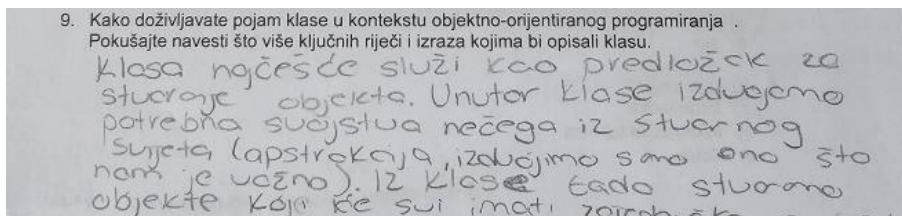 9. Kako doživljavate pojam klase u kontekstu objektno-orijentiranog programiranja .
Pokušajte navesti što više ključnih riječi i izraza kojima bi opisali klasu.
Klasa najčešće služi kao predložek za
stvaranje objekta. Unutar klase izdvajamo
potrebna svojstva nečega iz stvarnog
svijeta (apstrakcija, izdvojimo samo ono što
nam je važno). Iz klase tada stvaramo
objekte koji će svi imati